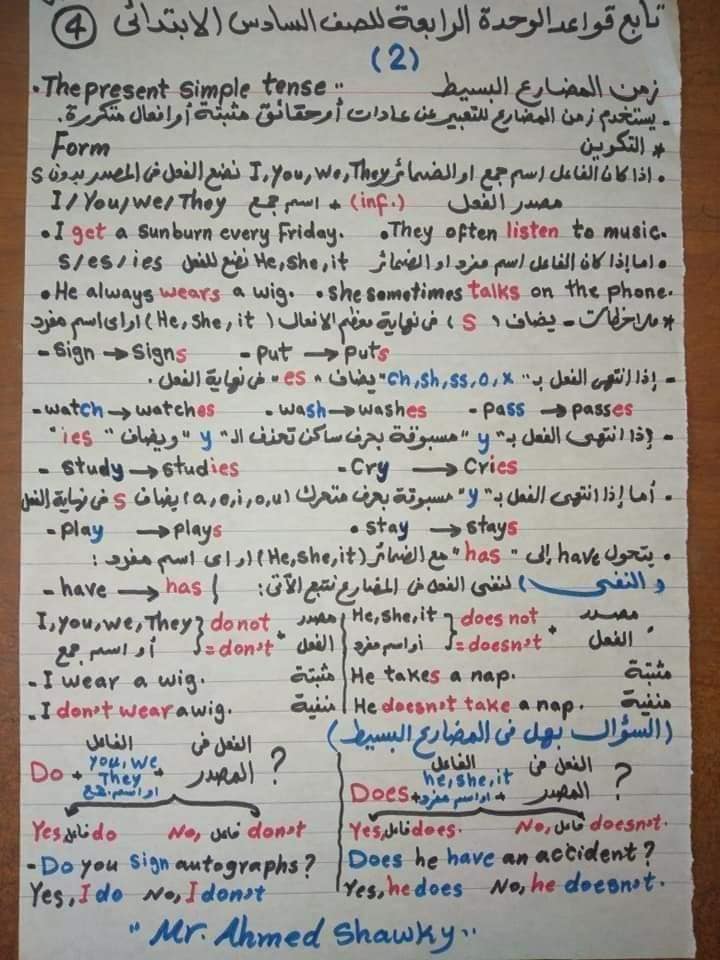 تابع قواعد الوحدة الرابعة للصف السادس الابتدائى ④
(2)
زمن المضارع البسيط The present simple tense
- يستخدم زمن المضارع للتعبير عن عادات أو حقائق مثبتة أو افعال متكررة.
* التكوين Form
• اذا كان الفاعل اسم جمع او الضمائر I, You, We, They نضع الفعل فى المصدر بدون s
I/You/we/They اسم جمع + (inf.) مصدر الفعل
• I get a sunburn every Friday. • They often listen to music.
• اما إذا كان الفاعل اسم مفرد او الضمائر He, she, it نضع للفعل s/es/ies
• He always wears a wig. • she sometimes talks on the phone.
* ملاحظات - يضاف (s) فى نهاية معظم الافعال (He, she, it) او اى اسم مفرد
- sign → signs - put → puts
- إذا انتهى الفعل بـ "ch, sh, ss, o, x" يضاف "es" فى نهاية الفعل.
- watch → watches - wash → washes - pass → passes
- إذا انتهى الفعل بـ "y" مسبوقة بحرف ساكن تحذف الـ "y" ويضاف "ies"
- study → studies - cry → cries
• أما إذا انتهى الفعل بـ "y" مسبوقة بحرف متحرك (a, e, i, o, u) يضاف s فى نهاية الفعل
- play → plays • stay → stays
• يتحول have إلى "has" مع الضمائر (He, she, it) او اى اسم مفرد:
- have → has } (والنفى) لنفى الفعل فى المضارع نتبع الآتى:
I, you, we, They } do not مصدر
أو اسم جمع = don't + الفعل
- I wear a wig. مثبتة
- I don't wear a wig. منفية
He, she, it } does not مصدر
أو اسم مفرد = doesn't + الفعل
He takes a nap. مثبتة
He doesn't take a nap. منفية
(السؤال بهل فى المضارع البسيط)
الفاعل الفعل فى
Do + you, we They او اسم جمع + المصدر ?
Yes, فاعل do No, فاعل don't
- Do you sign autographs?
Yes, I do No, I don't
الفاعل الفعل فى
Does + he, she, it او اسم مفرد + المصدر ?
Yes, فاعل does. No, فاعل doesn't.
Does he have an accident?
Yes, he does No, he doesn't.
"Mr. Ahmed Shawky"